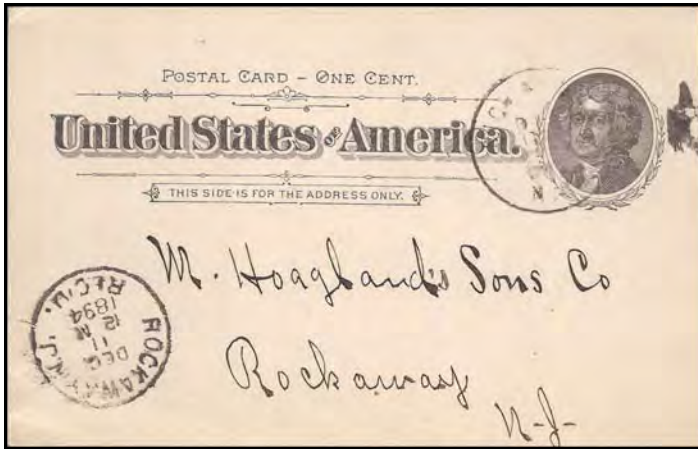 POSTAL CARD – ONE CENT.
United States of America.
THIS SIDE IS FOR THE ADDRESS ONLY.
M. Hoagland's Sons Co
Rockaway
N-J-
ROCKAWAY N.J.
DEC
11
12 M
1894
REC'D.